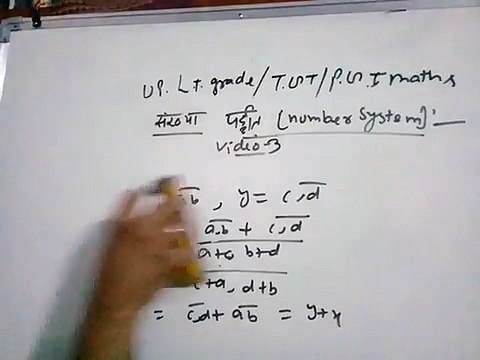 UP. LT. grade/T.G.T/P.G.T maths
संख्या पद्धति (number System):—
Video-3
a,b , y = c,d
a,b + c,d
a+c, b+d
c+a, d+b
= c,d + a,b = y+x